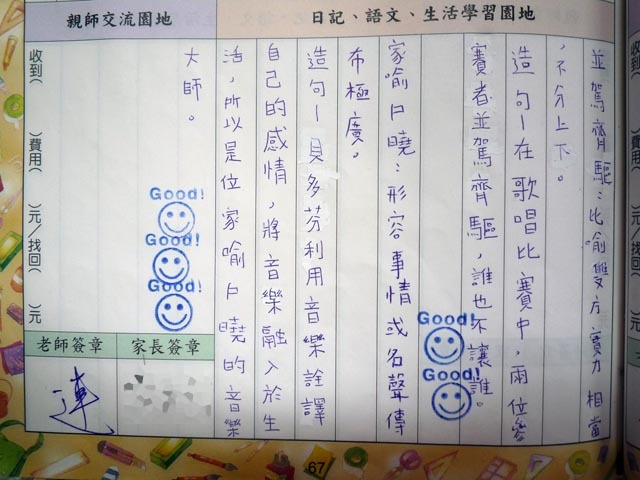 日記、語文、生活學習園地
並駕齊驅：比喻雙方實力相當
，不分上下。
造句－在歌唱比賽中，兩位參
賽者並駕齊驅，誰也不讓誰。
家喻戶曉：形容事情或名聲傳
布極廣。
造句－貝多芬利用音樂詮譯
自己的感情，將音樂融入於生
活，所以是位家喻戶曉的音樂
大師。
Good!
Good!
Good!
Good!
Good!
親師交流園地
收到(　　)費用(　　)元/找回(　　)元
家長簽章
老師簽章
連
67